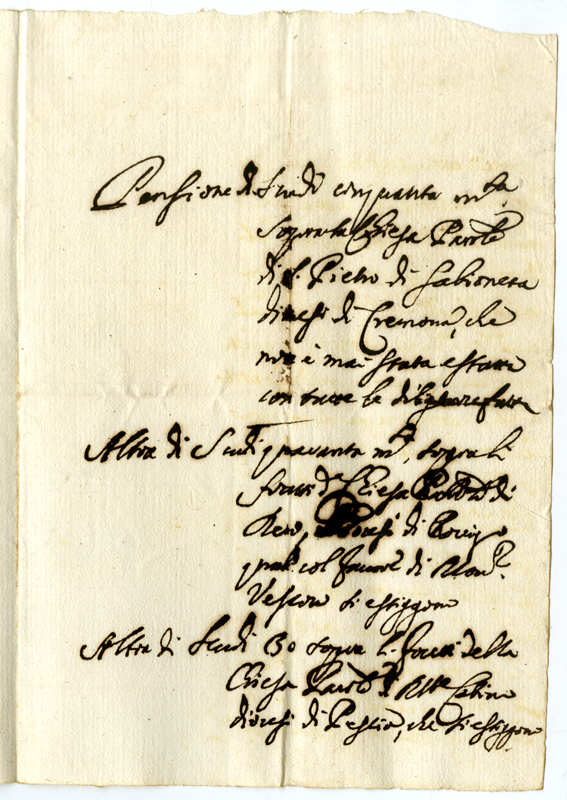 Pensione di Scudi cinquanta m.ta
sopra la Chiesa Parole
di S. Pietro di Sabioneta
diocesi di Cremona, che
non è mai stata esatta
con tutte le diligenze fatte
Altra di Scudi quaranta m.ta, sopra li
frutti d Chiesa di
Rero, Diocesi di
quali col favore di Mons.r
Vescovo si esiggono
Altra di Scudi 30 sopra li frutti della
Chiesa
diocesi di che si esiggono